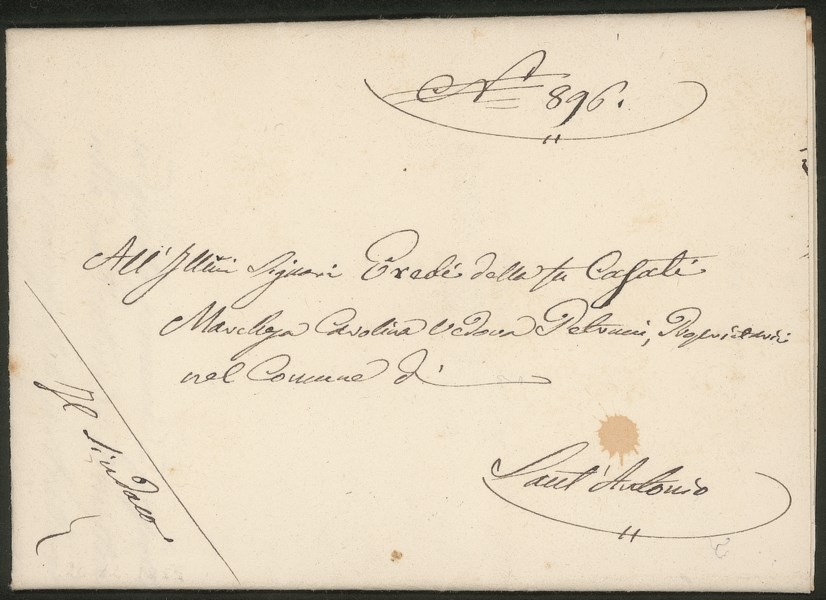 N° 896.
All' Illmi Signori Eredi della fu Casati
Marchesa Carolina Vedova Petrucci, Proprietarii
nel Comune di
Sant' Antonio
Il Sindaco